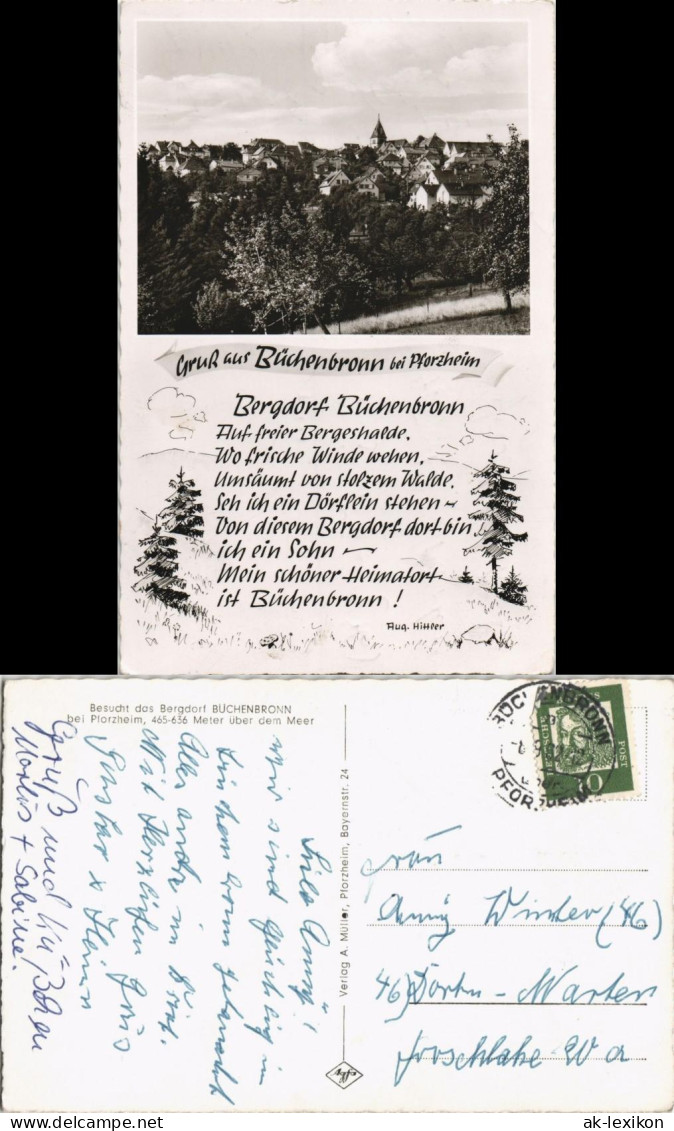 Gruß aus Büchenbronn bei Pforzheim
Bergdorf Büchenbronn
Auf freier Bergeshalde,
Wo frische Winde wehen,
Umsäumt von stolzem Walde,
Seh ich ein Dörflein stehen ~
Von diesem Bergdorf dort bin
ich ein Sohn ~
Mein schöner Heimatort
ist Büchenbronn !
Aug. Hittler
Besucht das Bergdorf BÜCHENBRONN
bei Pforzheim, 465-636 Meter über dem Meer
Gruß und Küßchen
Marlis + Sabine.
Anny!
wir sind glücklich in
Büchenbronn gebracht
Alles andre im
Mit herzlichen
Gustav + 
Verlag A. Müller, Pforzheim, Bayernstr. 24
Agfa
PFORZHEIM
DEUTSCHE
POST
Frau
Anny Winter (46)
46) Dortm - Marten
20 a
ak-lexikon